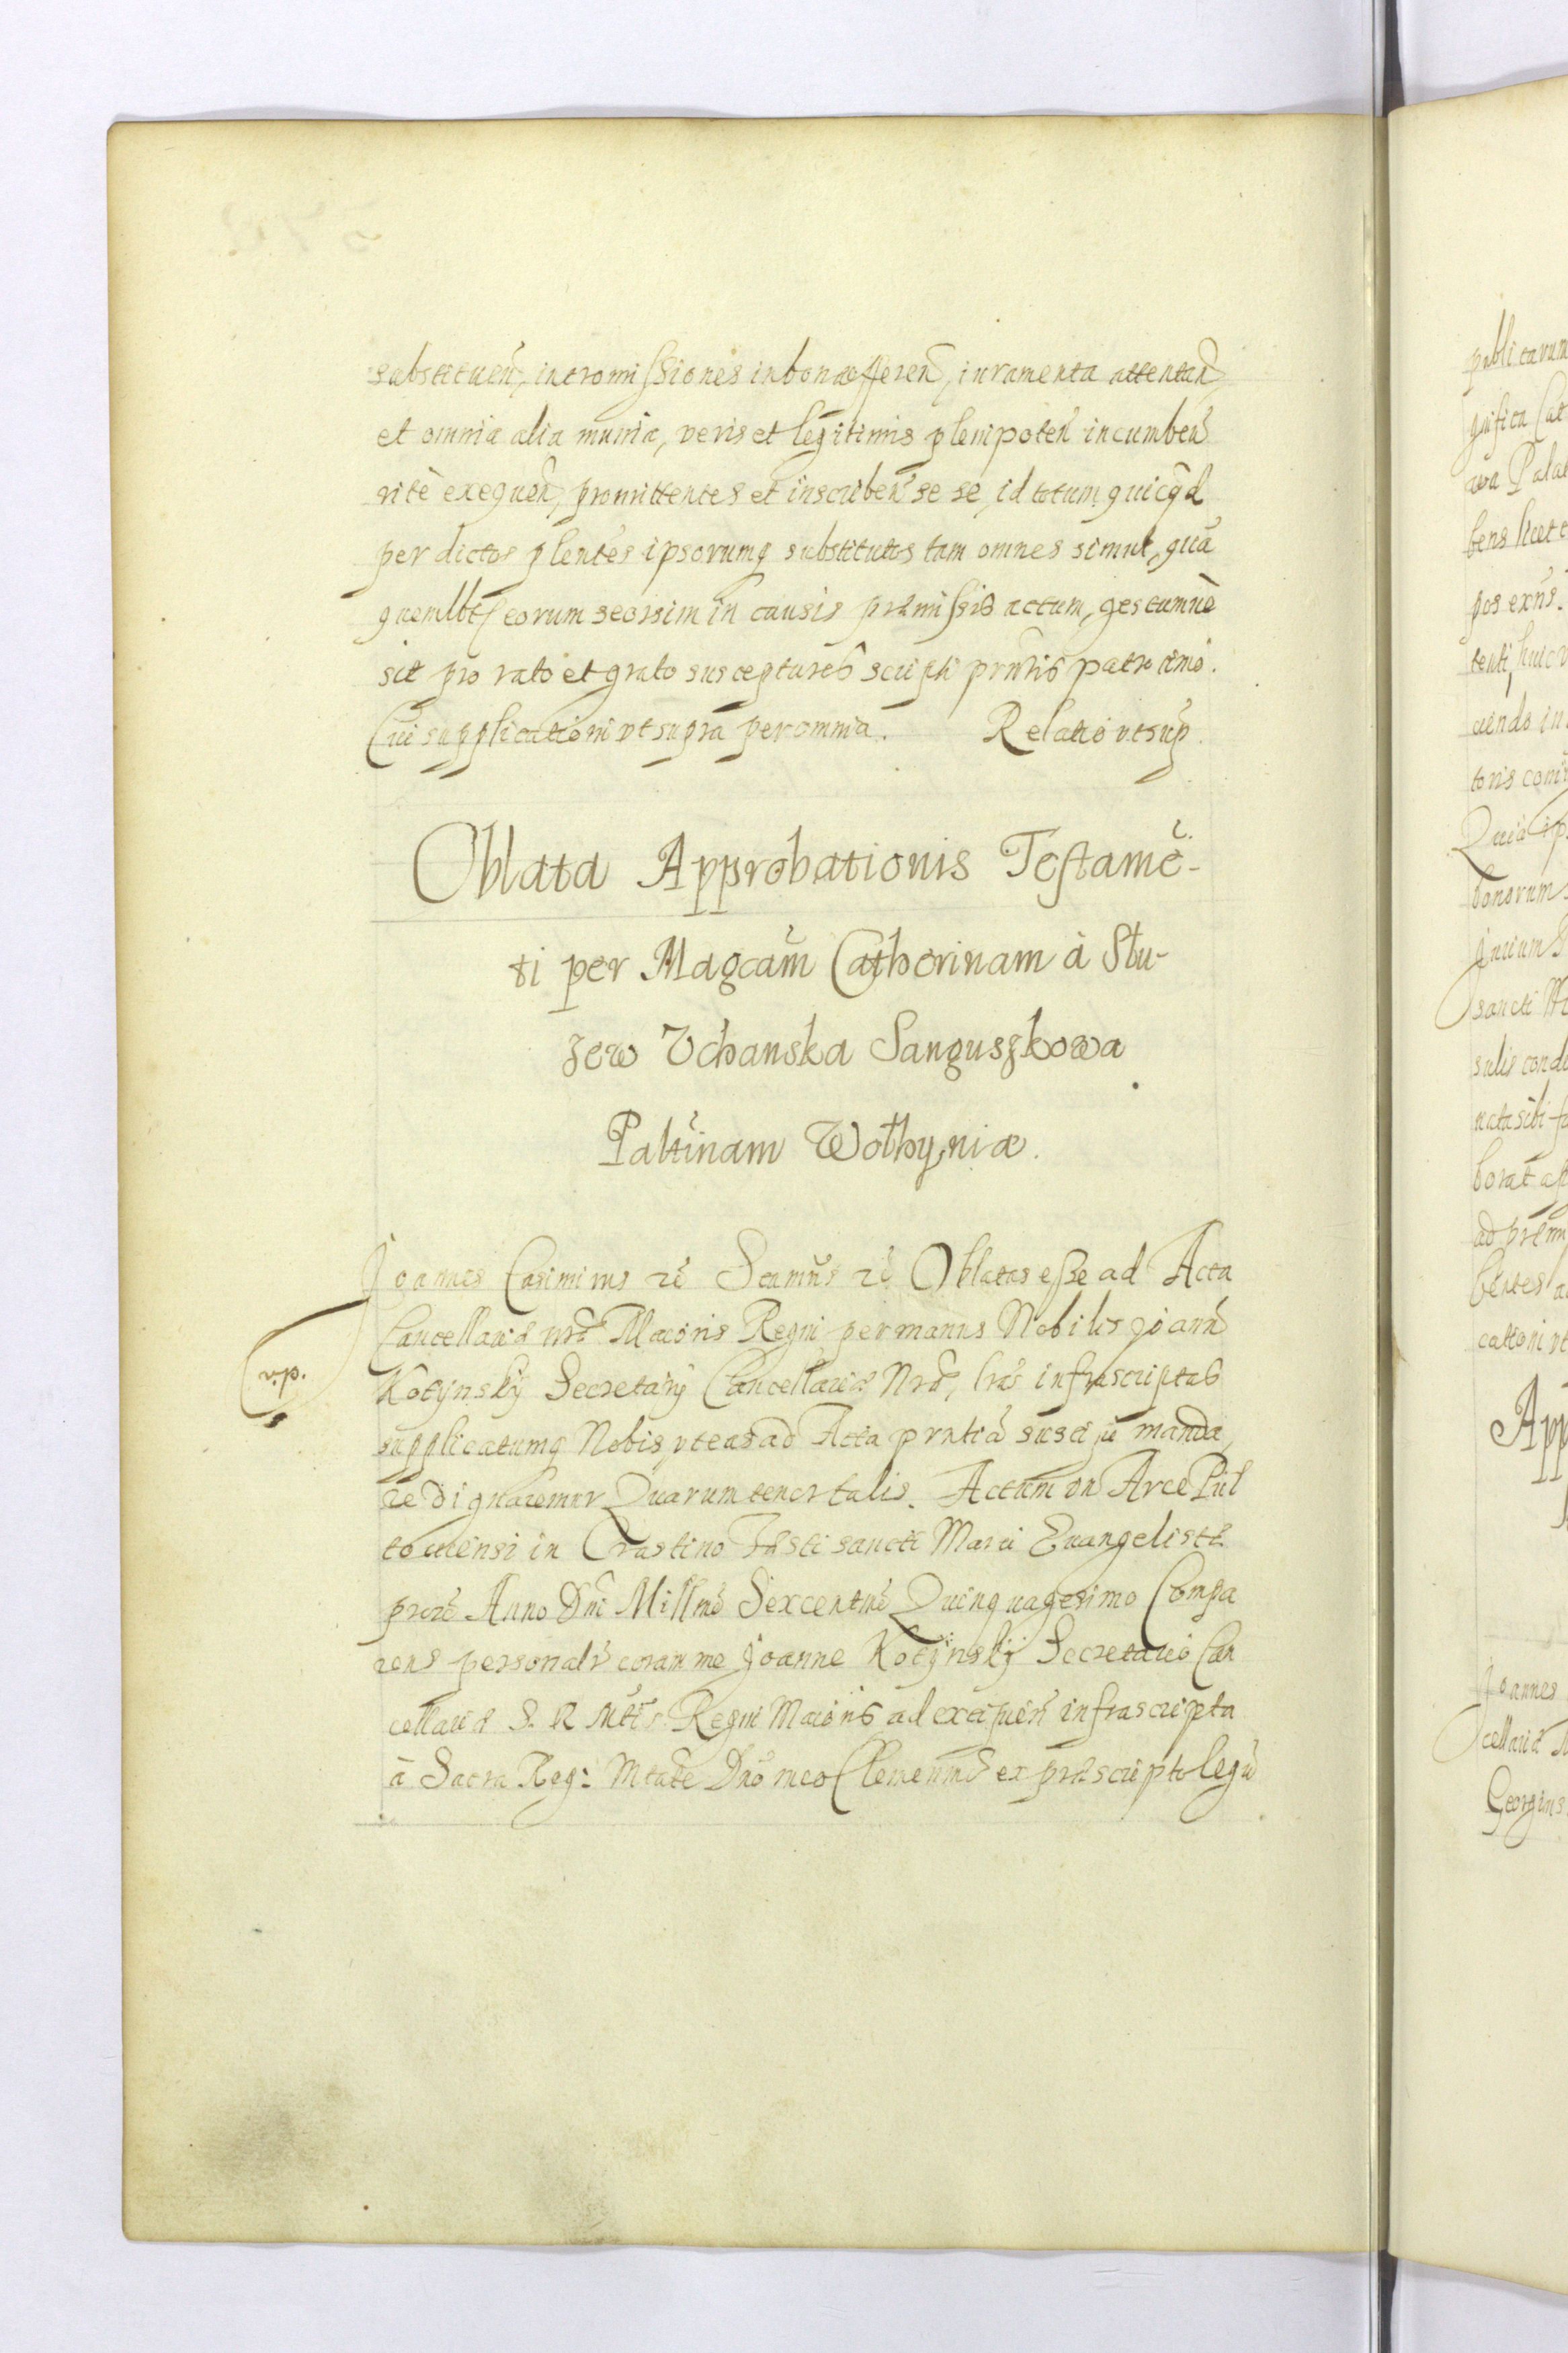 substituen̄, intromissiones in bona efferen̄, iuramenta attentan̄,
et omnia alia munia, veris et legitimis plenipoten̄ incumben̄
ritè exequen̄, promittentes et inscriben̄ se se, id totum quicq̄d
per dictos plentes ipsorumq substitutos tam omnes simul, quā
quemlbt eorum seorsim in causis præmissis actum, gestumuè
sit pro rato et grato suscepturos scripti prntis patrocinio.
Cui supplicationi vt supra per omnia. Relatio vt sup.
Oblata Approbationis Testamē-
ti per Magcam̄ Catherinam à Stu-
zew Vchanska Sanguszkowa
Paltinam Wołhyniæ.
Joannes Casimirus rē Seamus rē Oblatas esse ad Acta
Cancellariæ nræ Maioris Regni per manus Nobilis Joann̄
Kotynskÿ Secretarÿ Cancellariæ Nræ, lras infrascriptas
supplicatumq Nobis, vt eas ad Acta prntia suscipi manda
re dignaremur Quarum tenor talis. Actum in Arce Pul
touiensi in Crastino Festi sancti Marci Euangelistæ
proxē Anno Dni Millmo Sexcentmo Quinquagesimo Compa
rens personalr coram me Joanne Kotÿnskÿ Secretario Can
cellariæ S. R Mtis Regni Maioris ad excipien̄ infrascripta
à Sacra Reg: Mtate Dno meo Clemenmo ex præscripto legū
publicarum
gnifica Cat
wa Palat
bens licet e
pos exn̄s.
tenti, huic
uendo in
toris
Quia ip
bonorum
sancti
sulis
nata sibi
borat
ad præmi
bentes
cationi vt
App
Joannes
cellariæ
Georgius